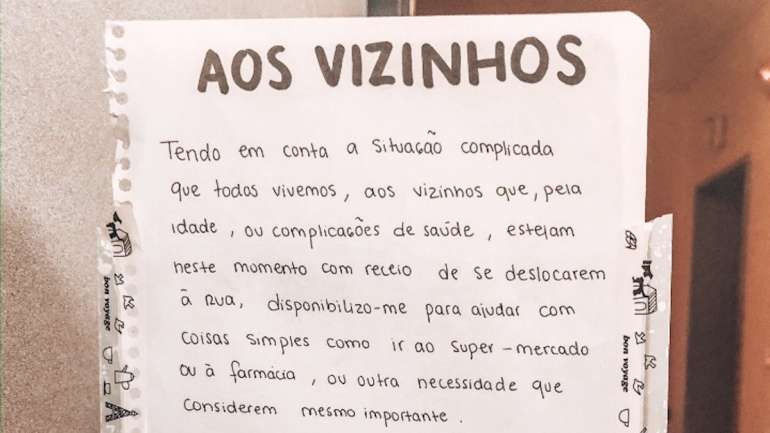 AOS VIZINHOS
Tendo em conta a situação complicada
que todos vivemos, aos vizinhos que, pela
idade, ou complicações de saúde, estejam
neste momento com receio de se deslocarem
à rua, disponibilizo-me para ajudar com
coisas simples como ir ao super-mercado
ou à farmácia, ou outra necessidade que
considerem mesmo importante.
bon voyage
bon voyage